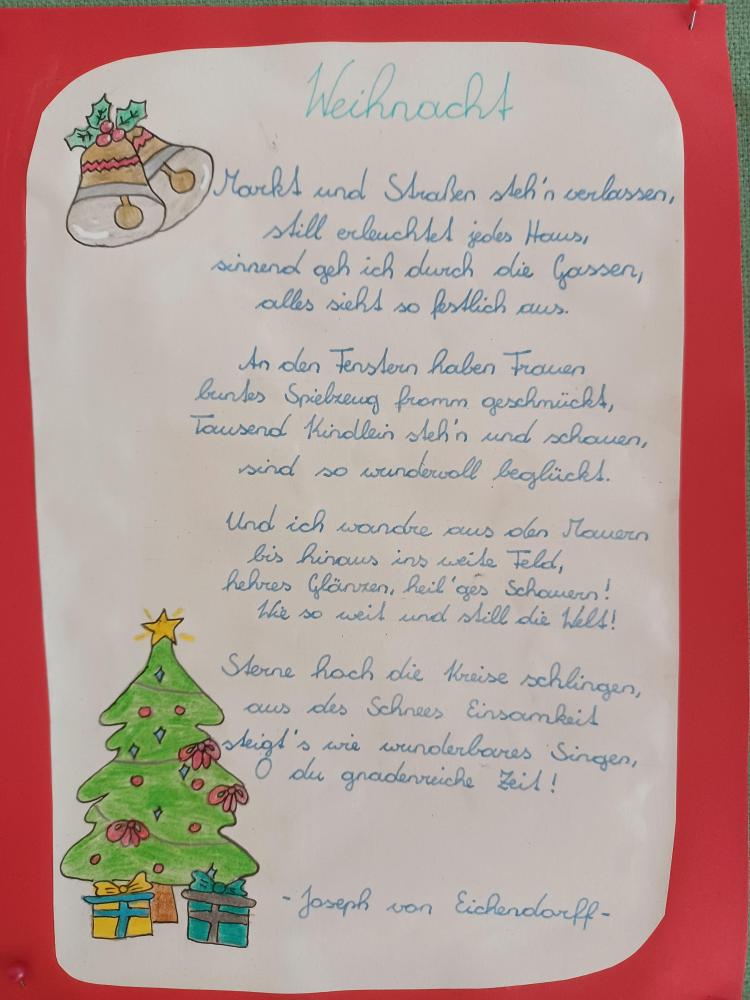 Weihnacht
Markt und Straßen steh'n verlassen,
still erleuchtet jedes Haus,
sinnend geh ich durch die Gassen,
alles sieht so festlich aus.
An den Fenstern haben Frauen
buntes Spielzeug fromm geschmückt,
Tausend Kindlein steh'n und schauen,
sind so wundervoll beglückt.
Und ich wandre aus den Mauern
bis hinaus ins weite Feld,
hehres Glänzen, heil'ges Schauern!
Wie so weit und still die Welt!
Sterne hoch die Kreise schlingen,
aus des Schnees Einsamkeit
steigt's wie wunderbares Singen,
O du gnadenreiche Zeit!
-Joseph von Eichendorff-